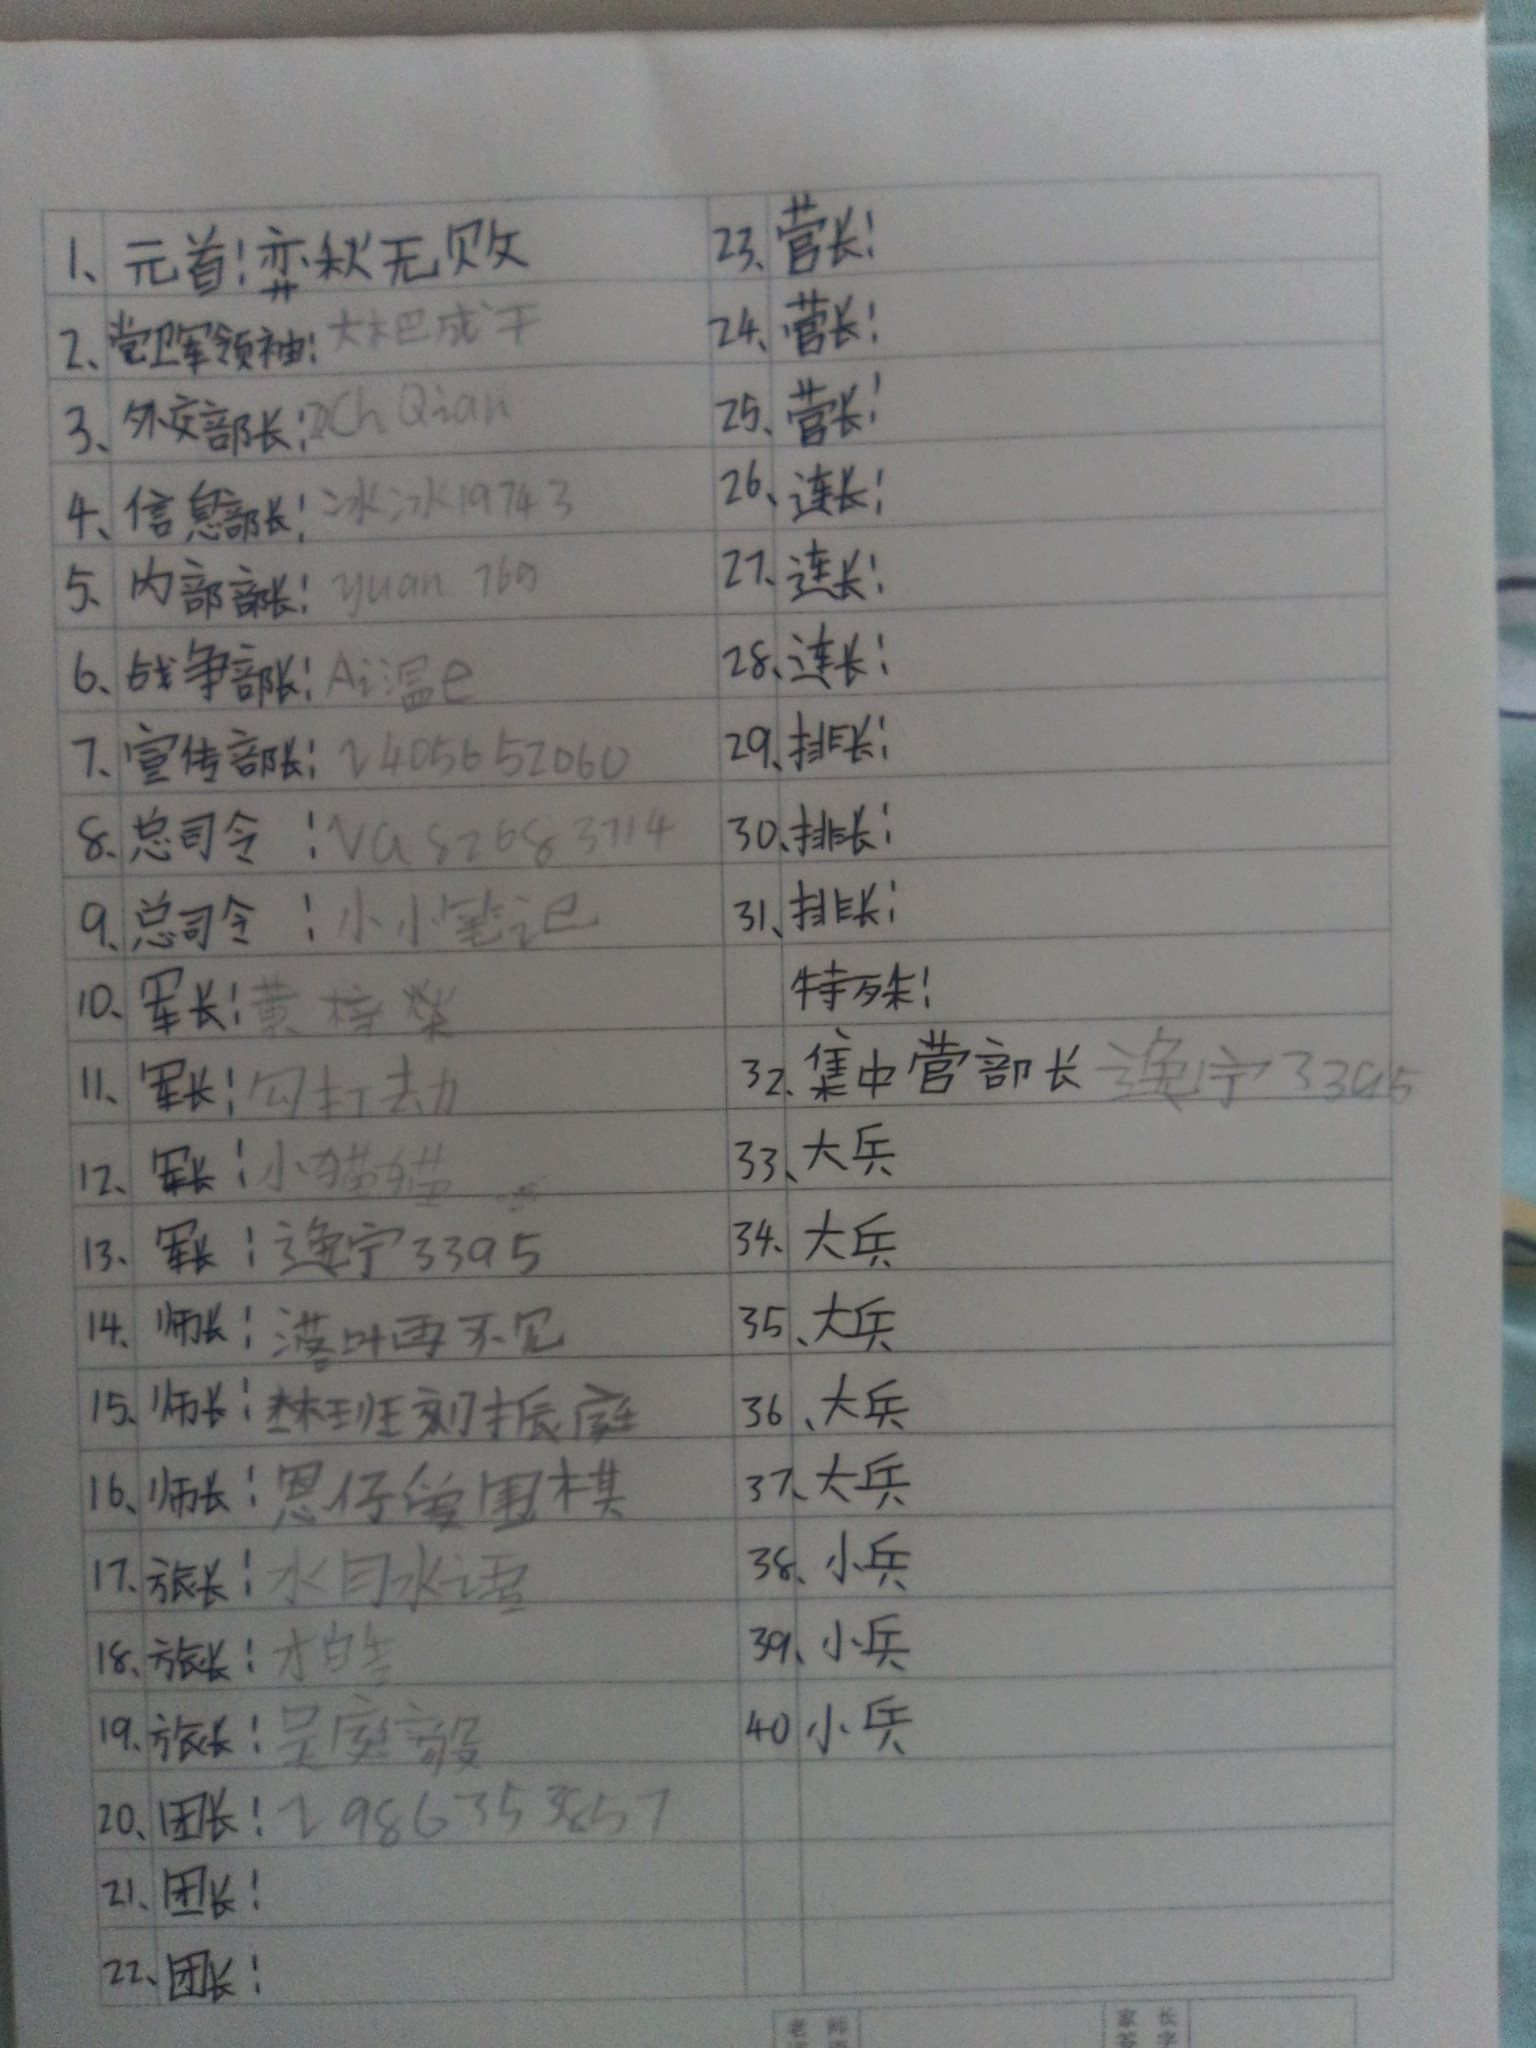 1、元首：弈秋无败
2、党卫军领袖：大林巴成干
3、外交部长：xch Qian
4、信息部长：冰冰19743
5、内部部长：yuan 769
6、战争部长：Ai温e
7、宣传部长：2405652060
8、总司令：VG82683714
9、总司令：小小笔记
10、军长：黄梓荣
11、军长：勾打劫
12、军长：小猫猫
13、军长：逸宁3395
14、师长：落叶再不见
15、师长：林班刘振庭
16、师长：恩仔爱围棋
17、旅长：水目水语
18、旅长：
19、旅长：吴庭毅
20、团长：2986353857
21、团长：
22、团长：
23、营长：
24、营长：
25、营长：
26、连长：
27、连长：
28、连长：
29、排长：
30、排长：
31、排长：
特殊：
32、集中营部长 逸宁3395
33、大兵
34、大兵
35、大兵
36、大兵
37、大兵
38、小兵
39、小兵
40 小兵
老师
家长